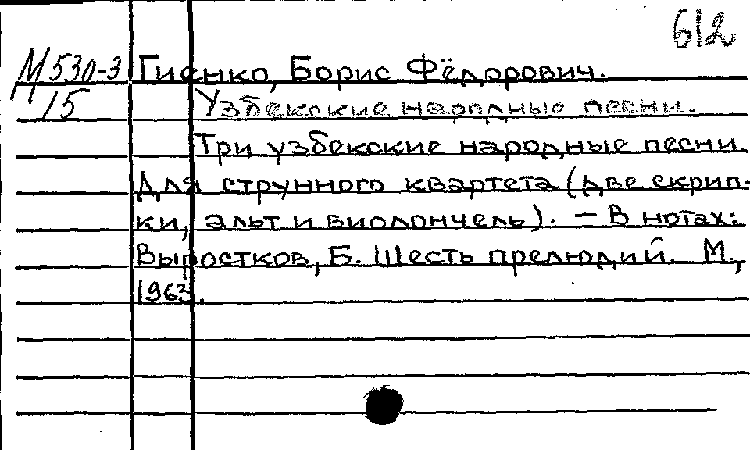 612
М530-3 Гиенко, Борис Фёдорович.
15 Узбекские народные песни.
Три узбекские народные песни.
Для струнного квартета (две скрип-
ки, альт и виолончель). — В нотах:
Выростков, Б. Шесть прелюдий. М.,
1963.